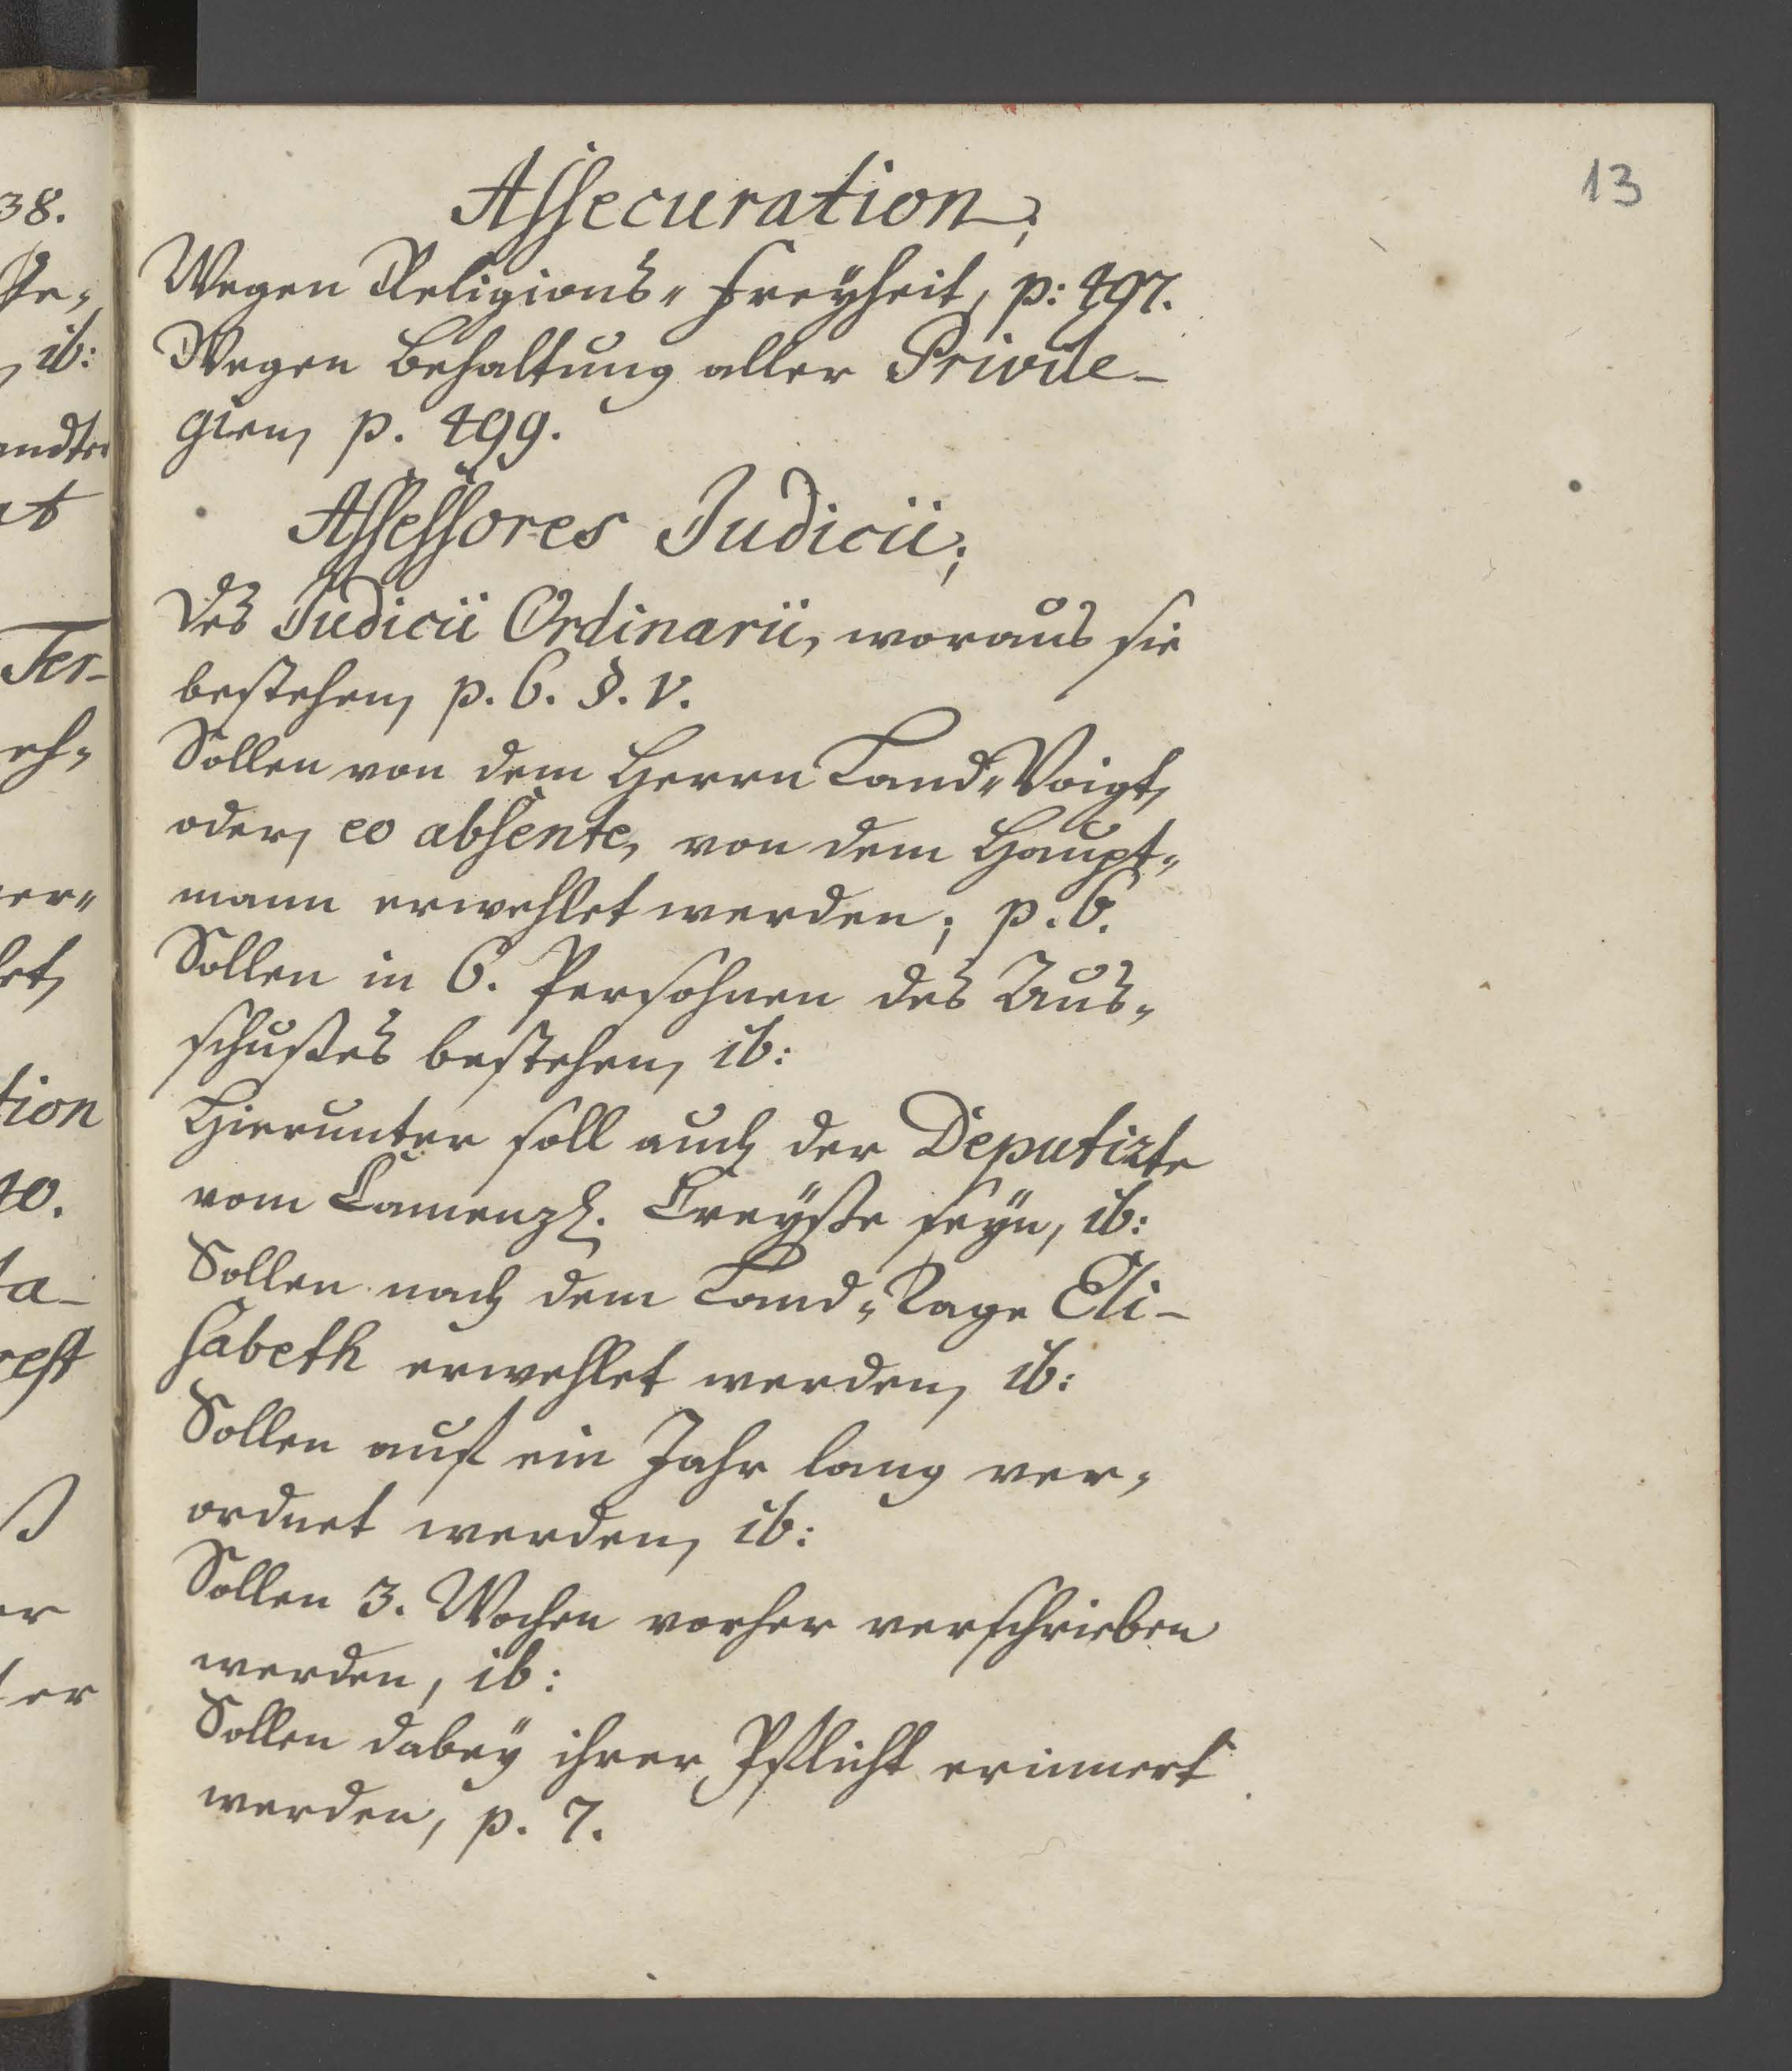 13
Assecuration;
Wegen Religions-Freÿheit, p: 497.
Wegen Behaltung aller Privile-
gien, p. 499.
Assessores Judicii;
Des Judicii Ordinarii, woraus sie
bestehen, p. 6. §. V.
Sollen von dem Herrn Land-Voigt,
oder, eo absente, von dem Haupt-
mann erwehlet werden; p. 6.
Sollen in 6. Persohnen des Aus-
schußes bestehen, ib:
Hierunter soll auch der Deputirte
vom Camenzl. Creÿße seÿn, ib:
Sollen nach dem Land-Tage Eli-
sabeth erwehlet werden, ib:
Sollen auf ein Jahr lang ver-
ordnet werden, ib:
Sollen 3. Wochen vorher verschrieben
werden, ib:
Sollen dabeÿ ihrer Pflicht erinnert
werden, p. 7.
38.
ib:
andter
at
Ter-
eh-
er-
let,
tion
40.
ta-
rest
er
ter